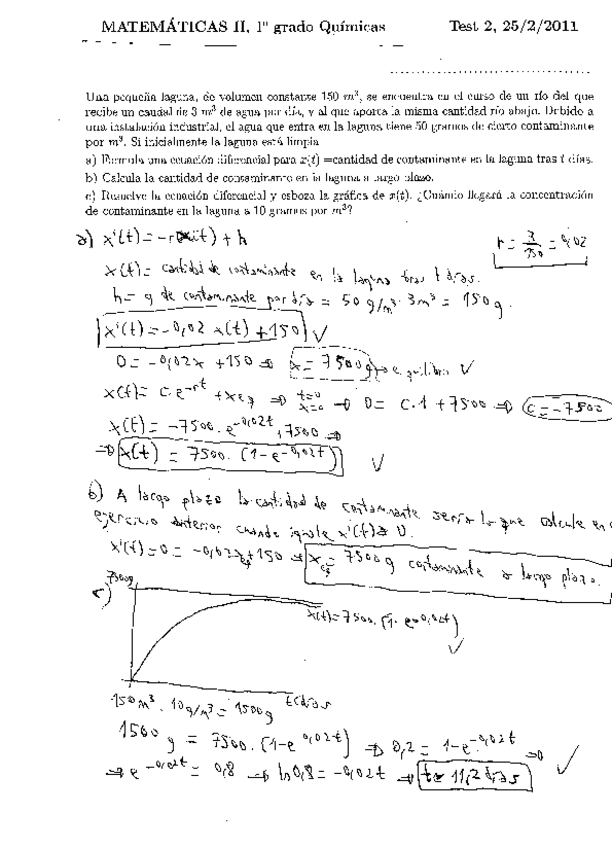 MATEMÁTICAS II, 1º grado Químicas Test 2, 25/2/2011
Una pequeña laguna, de volumen constante 150 m³, se encuentra en el curso de un río del que
recibe un caudal de 3 m³ de agua por día, y al que aporta la misma cantidad río abajo. Debido a
una instalación industrial, el agua que entra en la laguna tiene 50 gramos de cierto contaminante
por m³. Si inicialmente la laguna está limpia
a) Formula una ecuación diferencial para x(t) =cantidad de contaminante en la laguna tras t días.
b) Calcula la cantidad de contaminante en la laguna a largo plazo.
c) Resuelve la ecuación diferencial y esboza la gráfica de x(t). ¿Cuándo llegará la concentración
de contaminante en la laguna a 10 gramos por m³?
a) x'(t) = -r x(t) + h r = 3/150 = 0,02
x(t) = cantidad de contaminante en la laguna tras t días.
h = g de contaminante por día = 50 g/m³ · 3m³ = 150 g.
x'(t) = -0,02 x(t) + 150 √
0 = -0,02x + 150 ⇒ x = 7500g → equilibrio √
x(t) = C·e^-rt + xeq ⇒ t=0 x=0 → 0 = C·1 + 7500 ⇒ C = -7500
x(t) = -7500·e^-0,02t + 7500 ⇒
⇒ x(t) = 7500·(1-e^-0,02t) √
b) A largo plazo la cantidad de contaminante sería lo que calcule en
ejercicio anterior cuando iguale x'(t) a 0.
x'(t) = 0 = -0,02xeq + 150 → xeq = 7500g contaminante a largo plazo.
7500g
c)
x(t) = 7500·(1-e^-0,02t)
√
t (días)
150m³ · 10g/m³ = 1500g
1500 g = 7500·(1-e^-0,02t) ⇒ 0,2 = 1-e^-0,02t ⇒
→ e^-0,02t = 0,8 → ln 0,8 = -0,02t → t ≈ 11,2 días √